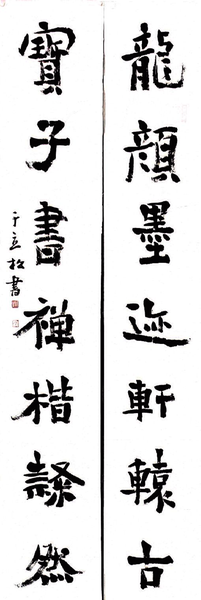 龍顔墨迹軒轅古
寶子書禪楷隸然
于立松書